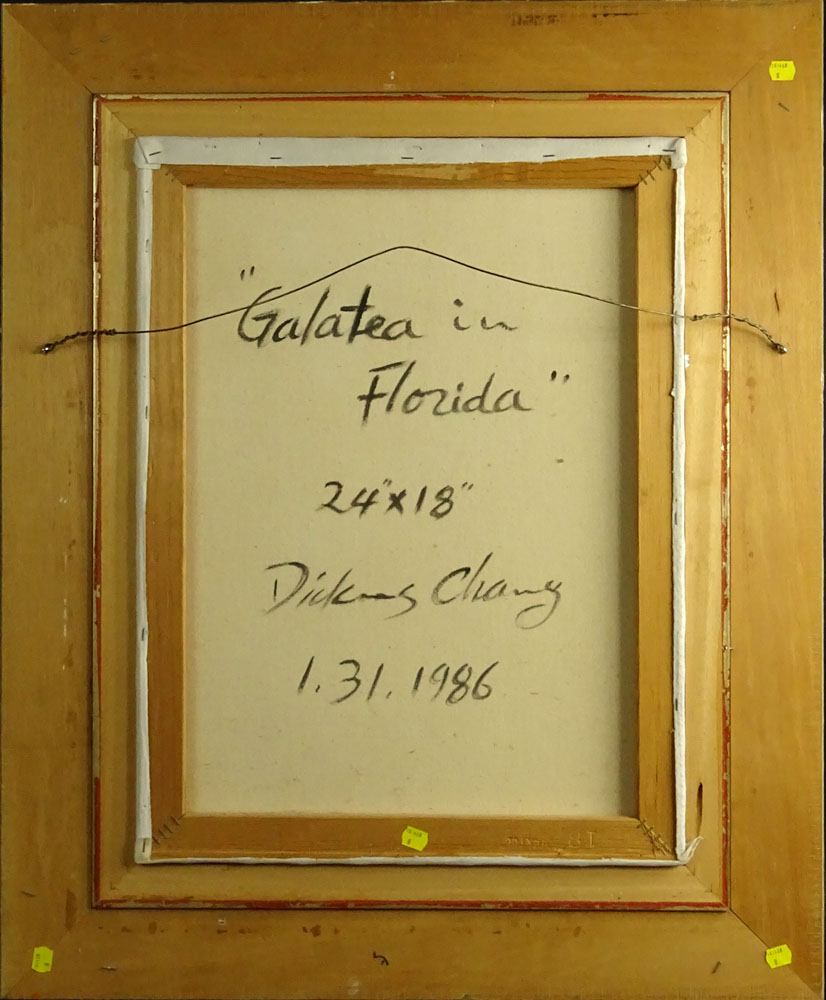 "Galatea in
Florida"
24"x18"
Chang
1.31.1986